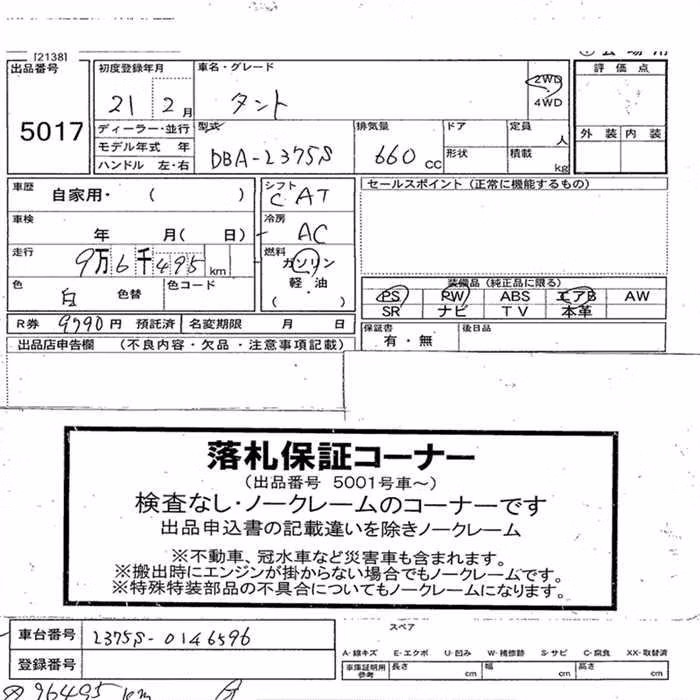 [2138]
出品番号 初度登録年月 車名・グレード 2WD 4WD 評価点
5017 21 2月 タント 外装 内装
ディーラー・並行 型式 排気量 ドア 定員 人
モデル年式 年 DBA-L375S 660cc 形状 積載 kg
ハンドル 左・右
車歴 自家用・( ) シフト C AT セールスポイント(正常に機能するもの)
車検 年 月( 日) 冷房 AC
走行 9万6千495km 燃料 ガソリン
軽・油
( )
色 白 色替 色コード
装備品(純正品に限る)
PS PW ABS エアB AW
SR ナビ TV 本革
R券 9790円 預託済 名変期限 月 日 保証書 有・無 後日品
出品店申告欄 (不良内容・欠品・注意事項記載)
落札保証コーナー
(出品番号 5001号車~)
検査なし・ノークレームのコーナーです
出品申込書の記載違いを除きノークレーム
※不動車、冠水車など災害車も含まれます。
※搬出時にエンジンが掛からない場合でもノークレームです。
※特殊特装部品の不具合についてもノークレームになります。
車台番号 L375S-0146596
登録番号
スペア
A-線キズ E-エクボ U-凹み W-補修跡 S-サビ C-腐食 XX-取替済
車庫証明用参考 長さ cm 幅 cm 高さ cm
96495 km